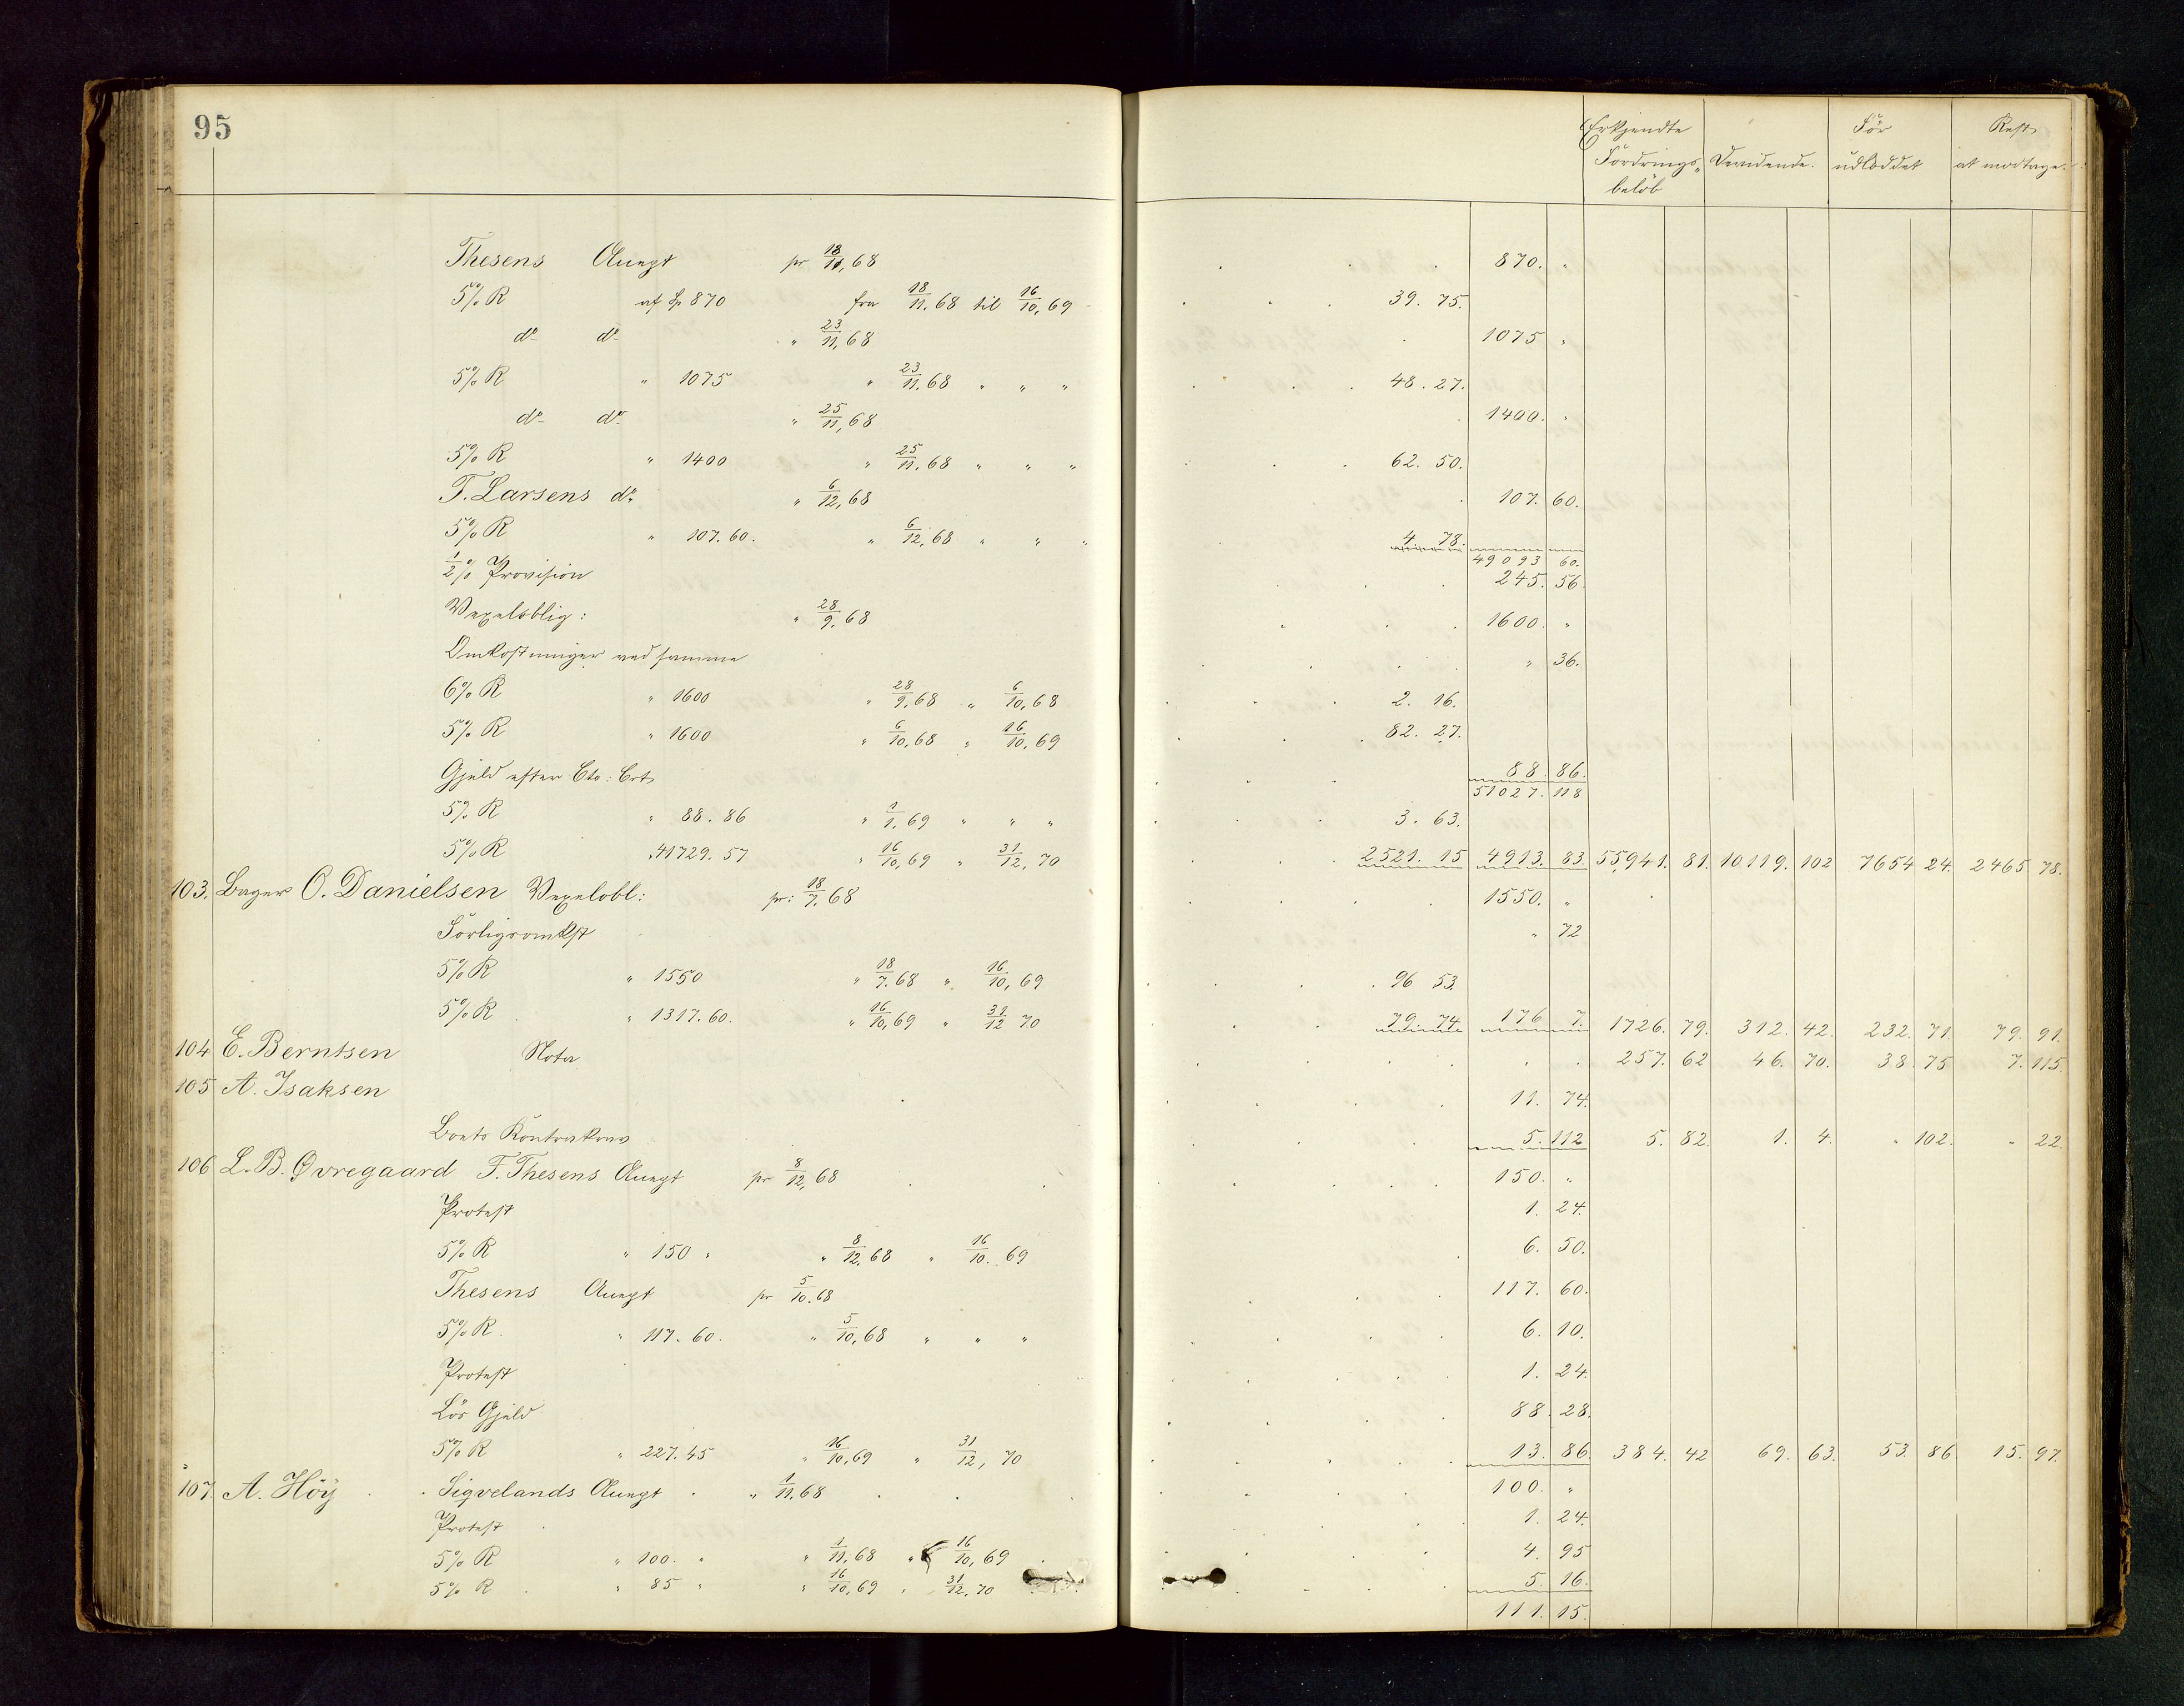 95
Erkjendte Fordrings- beløb
Devidende.
Før udloddet
Rest at modtage.
Thesens Accept pr 18/11, 68 870. "
5% R af Sp 870 fra 18/11. 68 til 16/10, 69 39. 75.
do do " 23/11, 68 1075 "
5% R " 1075 " 23/11. 68 " " " 48. 27.
do do " 25/11, 68 1400. "
5% R " 1400 " 25/11. 68 " " " 62. 50.
T. Larsens do " 6/12, 68 107. 60.
5% R " 107. 60. " 6/12, 68 " " " 4. 78.
49093 60.
1/2% Provision 245. 56
Vexeloblig: " 28/9. 68 1600. "
Omkostninger ved samme " 36.
6% R " 1600 " 28/9. 68 " 6/10, 68 2. 16.
5% R " 1600 " 6/10, 68 " 16/10, 69 82. 27.
Gjeld efter Cto: Crt 88. 86.
51027. 118
5% R " 88. 86 " 1/1. 69 " " " 3. 63.
5% R " 41729. 57 " 16/10, 69 " 31/12, 70 2521. 15 4913. 83. 55,941. 81. 10119. 102 7654 24. 2465 78.
103. Bager O. Danielsen Vexelobl: pr: 18/7. 68 1550. "
Forligsomkst " 72
5% R " 1550 " 18/7. 68 " 16/10, 69 96 53.
5% R " 1317. 60. " 16/10, 69 " 31/12 70 79. 74. 176 7. 1726. 79. 312. 42. 232. 71. 79. 91.
104 E. Berntsen Nota 257. 62 46. 70. 38. 75 7. 115.
105 A. Isaksen 11. 74.
Conto Kontrakrav 5. 112 5. 82. 1. 4. " 102. " 22.
106 L. B. Øvregaard F. Thesens Accept pr 8/12, 68 150. "
Protest 1. 24.
5% R " 150 " " 8/12. 68 " 16/10. 69 6. 50.
Thesens Accept pr 5/10. 68 117. 60.
5% R. " 117. 60. " 5/10, 68 " " " 6. 10.
Protest 1. 24.
Løs Gjeld 88. 28.
5% R " 227. 45 " 16/10, 69 " 31/12, 70 13. 86. 384. 42 69. 63. 53. 86 15. 97.
107. A. Höÿ Sigvelands Accept " 1/11. 68 100. "
Protest 1. 24.
5% R " 100. " " 1/11, 68 " 16/10, 69 4. 95
5% R " 85 " " 16/10, 69 " 31/12, 70 5. 16.
111. 15.